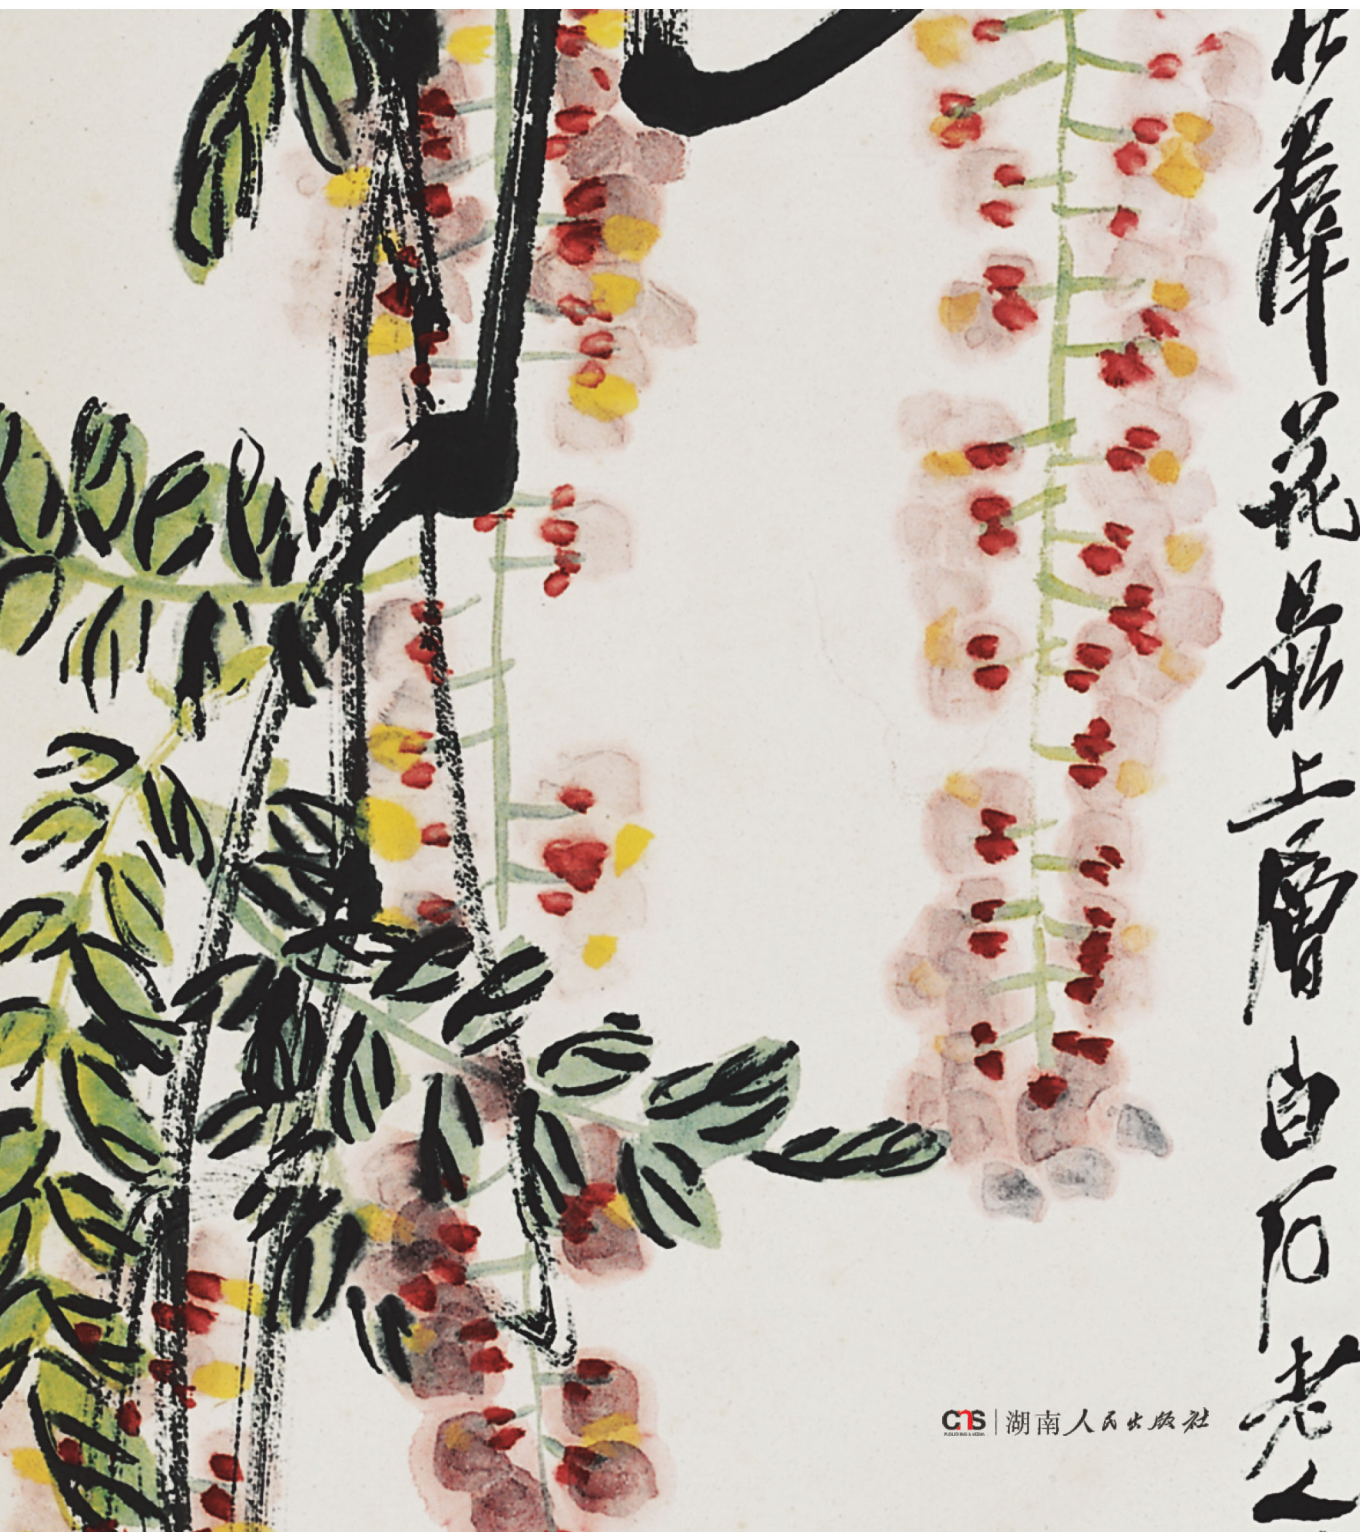 在群花最上層白石老人
CNS
PUBLISHING & MEDIA
湖南人民出版社